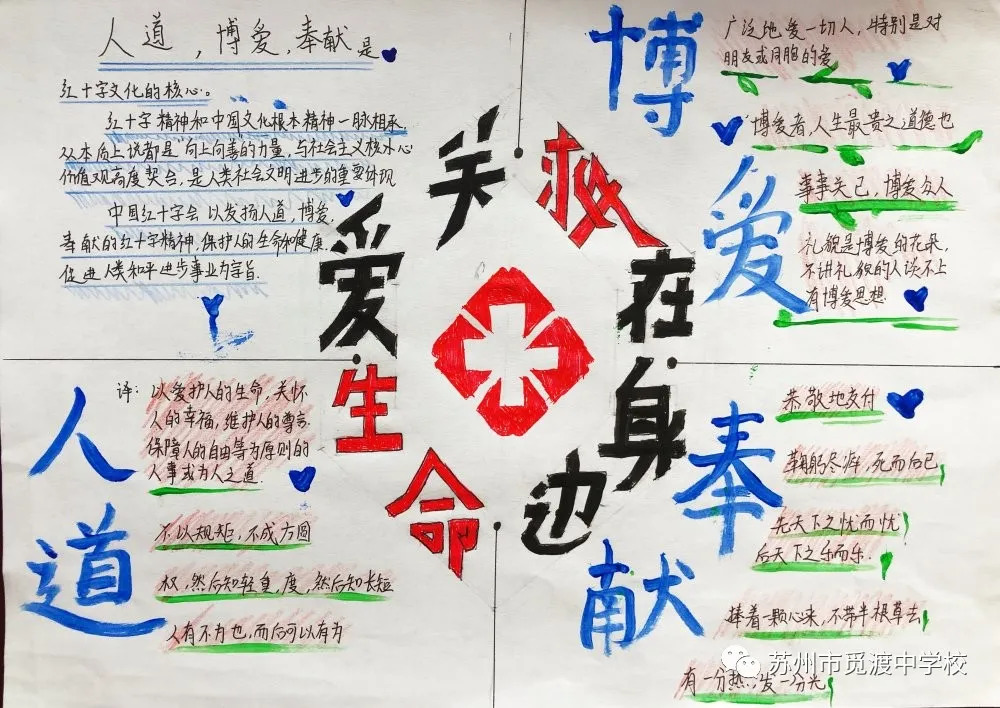 人道，博爱，奉献是
红十字文化的核心。
红十字精神和中国文化根本精神一脉相承
从本质上说都是“向上向善的力量，与社会主义核心
价值观高度契合，是人类社会文明进步的重要体现
中国红十字会以发扬人道，博爱，
奉献的红十字精神，保护人的生命和健康，
促进人类和平进步事业为宗旨.
博爱
广泛地爱一切人，特别是对
朋友或同胞的爱
“博爱者，人生最贵之道德也
事事关己，博爱众人
礼貌是博爱的花朵，
不讲礼貌的人谈不上
有博爱思想.
关爱生命
救在身边
人道
译：以爱护人的生命，关怀
人的幸福，维护人的尊严.
保障人的自由等为原则的
人事或为人之道.
不以规矩，不成方圆
权，然后知轻重，度，然后知长短
人有不为也，而后可以有为
奉献
恭敬地交付
鞠躬尽瘁，死而后已
先天下之忧而忧
后天下之乐而乐.
捧着一颗心来，不带半根草去
有一分热，发一分光
苏州市觅渡中学校